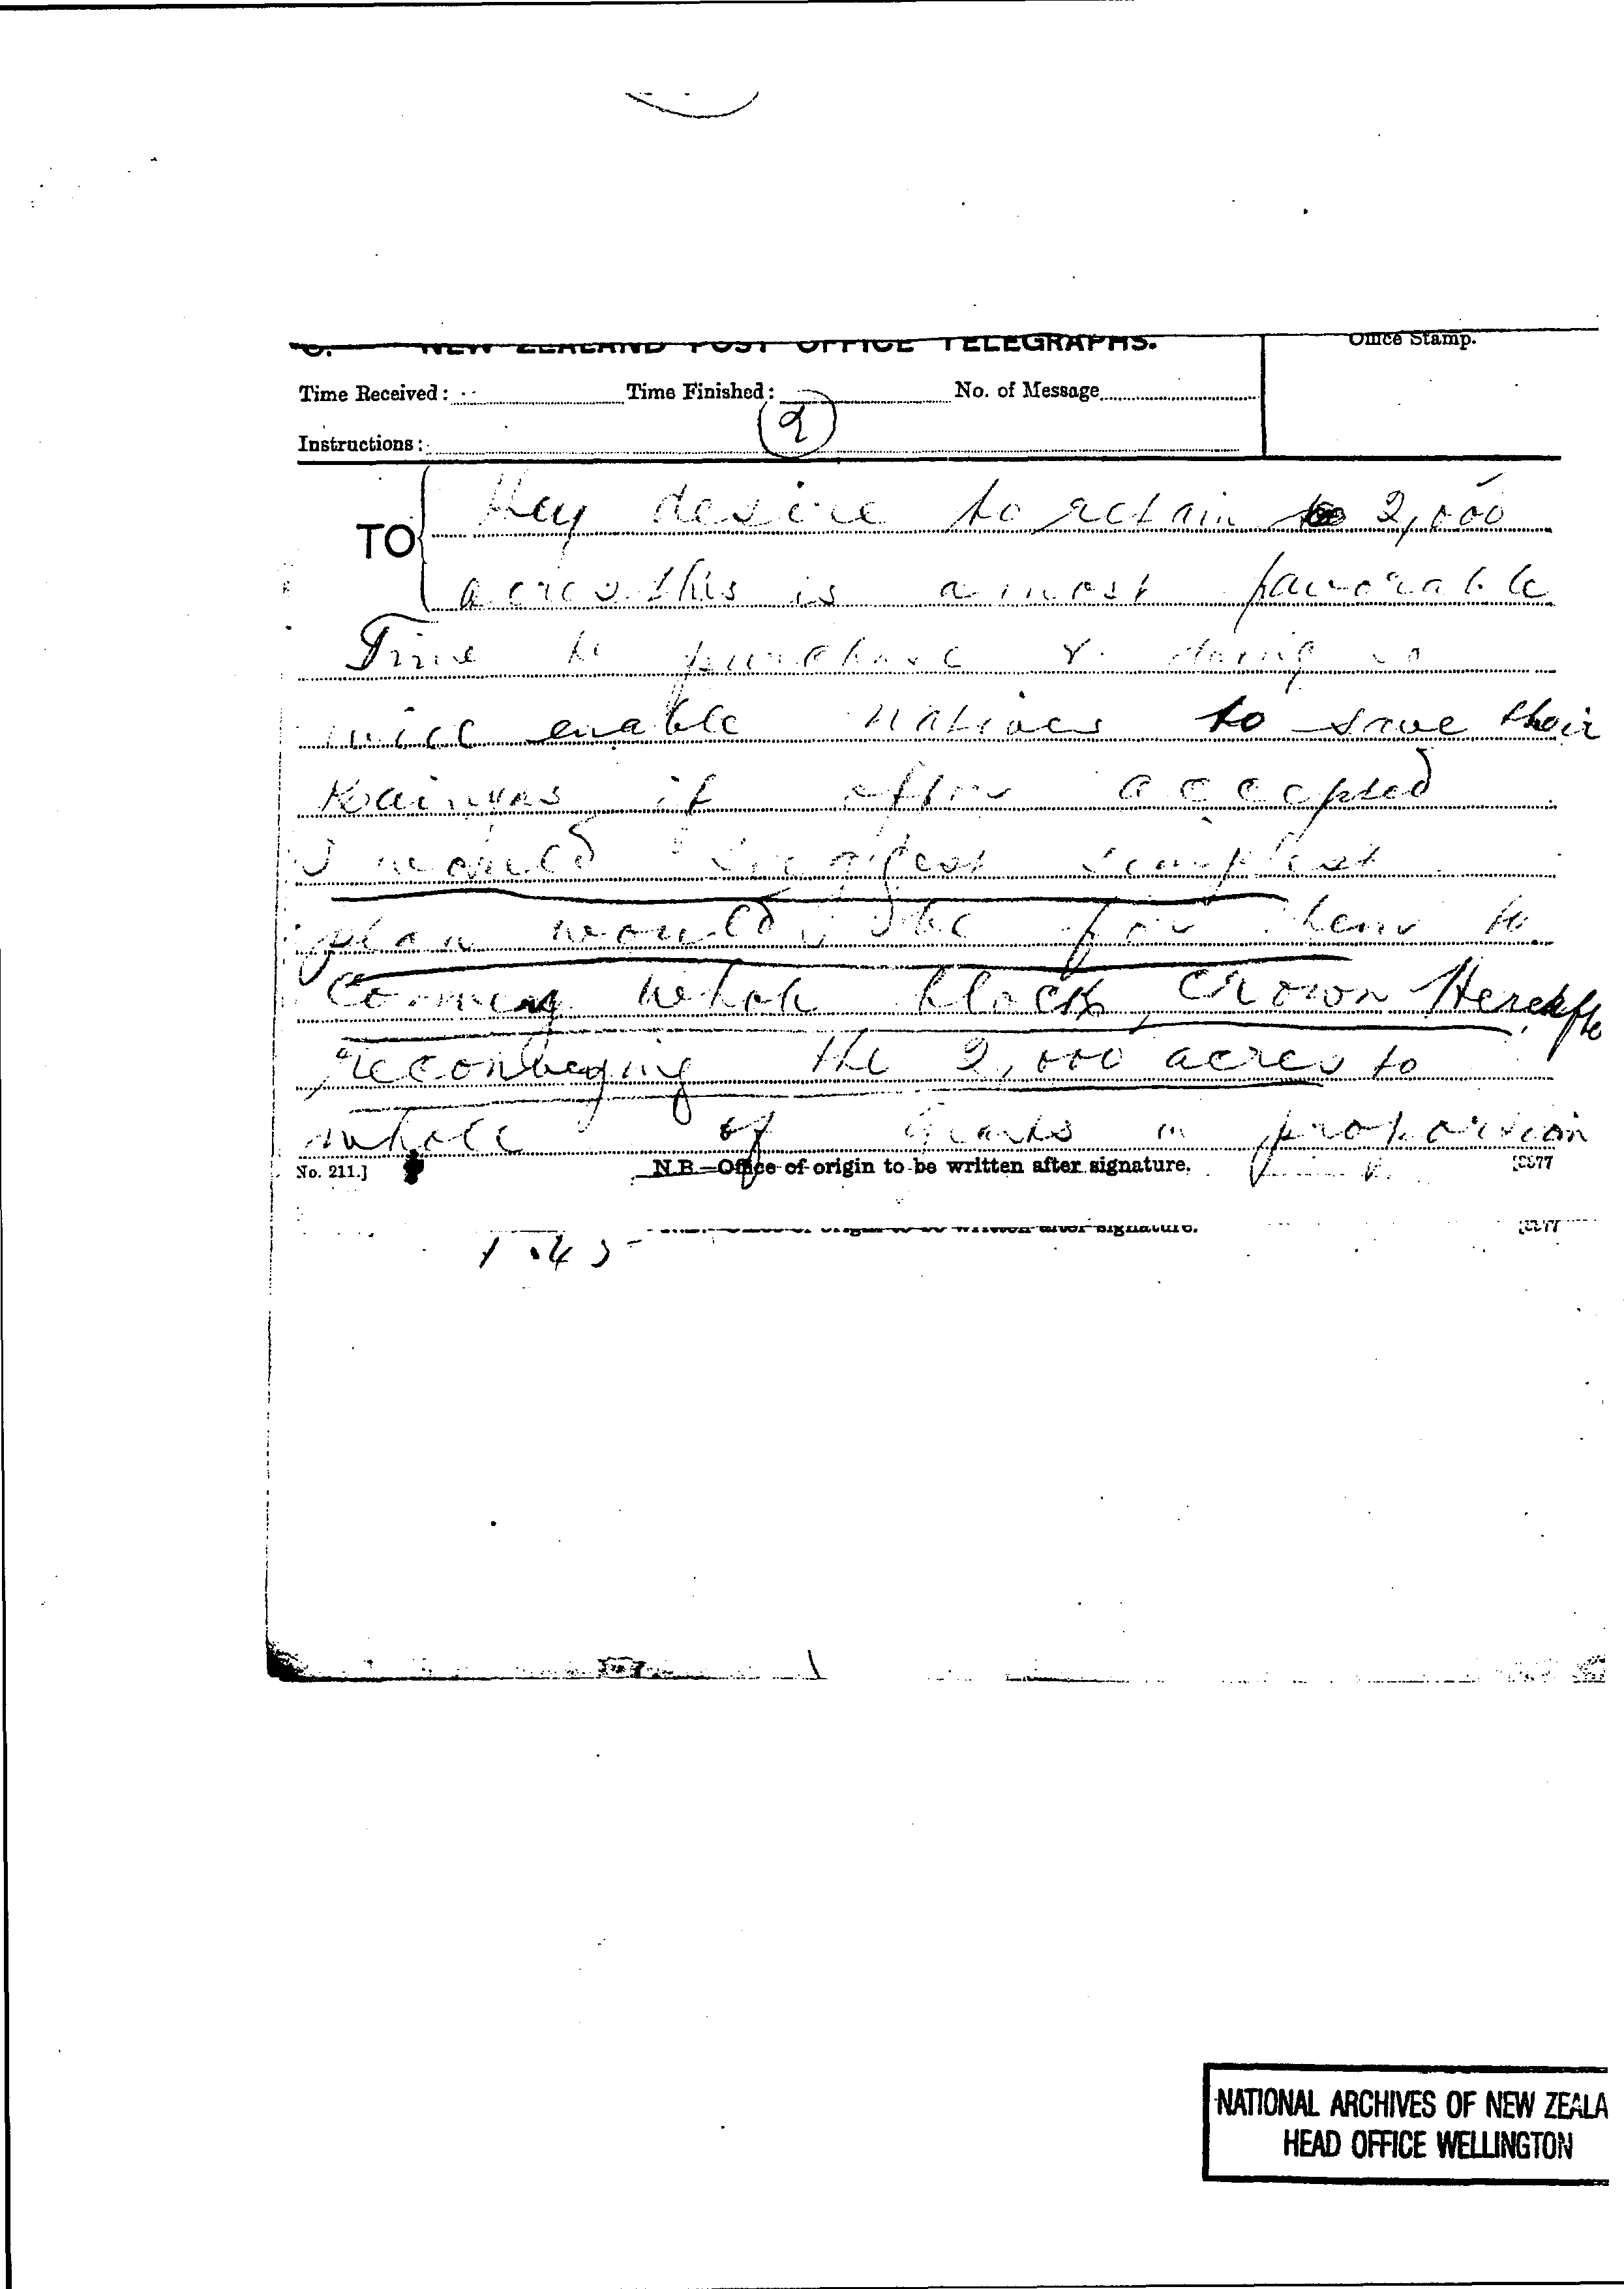 NEW ZEALAND POST OFFICE TELEGRAPHS.
Office Stamp.
Time Received: Time Finished: No. of Message
Instructions:
2
TO they desire to retain 2,000
acres this is a most favorable
Time to purchase & doing so
will enable natives to save their
Kaingas if offer accepted
I would suggest simplest
plan would be for them to
convey whole block Crown Hereafter
reconveying the 2,000 acres to
whole of in proportion
No. 211.]
N.B.—Office of origin to be written after signature.
signature.
NATIONAL ARCHIVES OF NEW ZEALA
HEAD OFFICE WELLINGTON